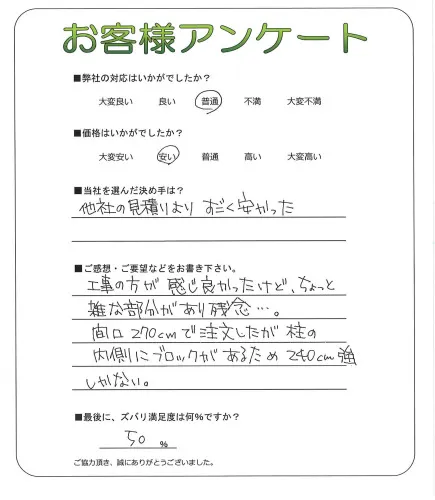 お客様アンケート
■弊社の対応はいかがでしたか？
大変良い 良い 普通 不満 大変不満
■価格はいかがでしたか？
大変安い 安い 普通 高い 大変高い
■当社を選んだ決め手は？
他社の見積りより すごく安かった
■ご感想・ご要望などをお書き下さい。
工事の方が 感じ良かったけど、ちょっと
雑な部分があり残念…。
間口270cmで注文したが 柱の
内側にブロックがあるため 240cm強
しかない。
■最後に、ズバリ満足度は何％ですか？
50 ％
ご協力頂き、誠にありがとうございました。